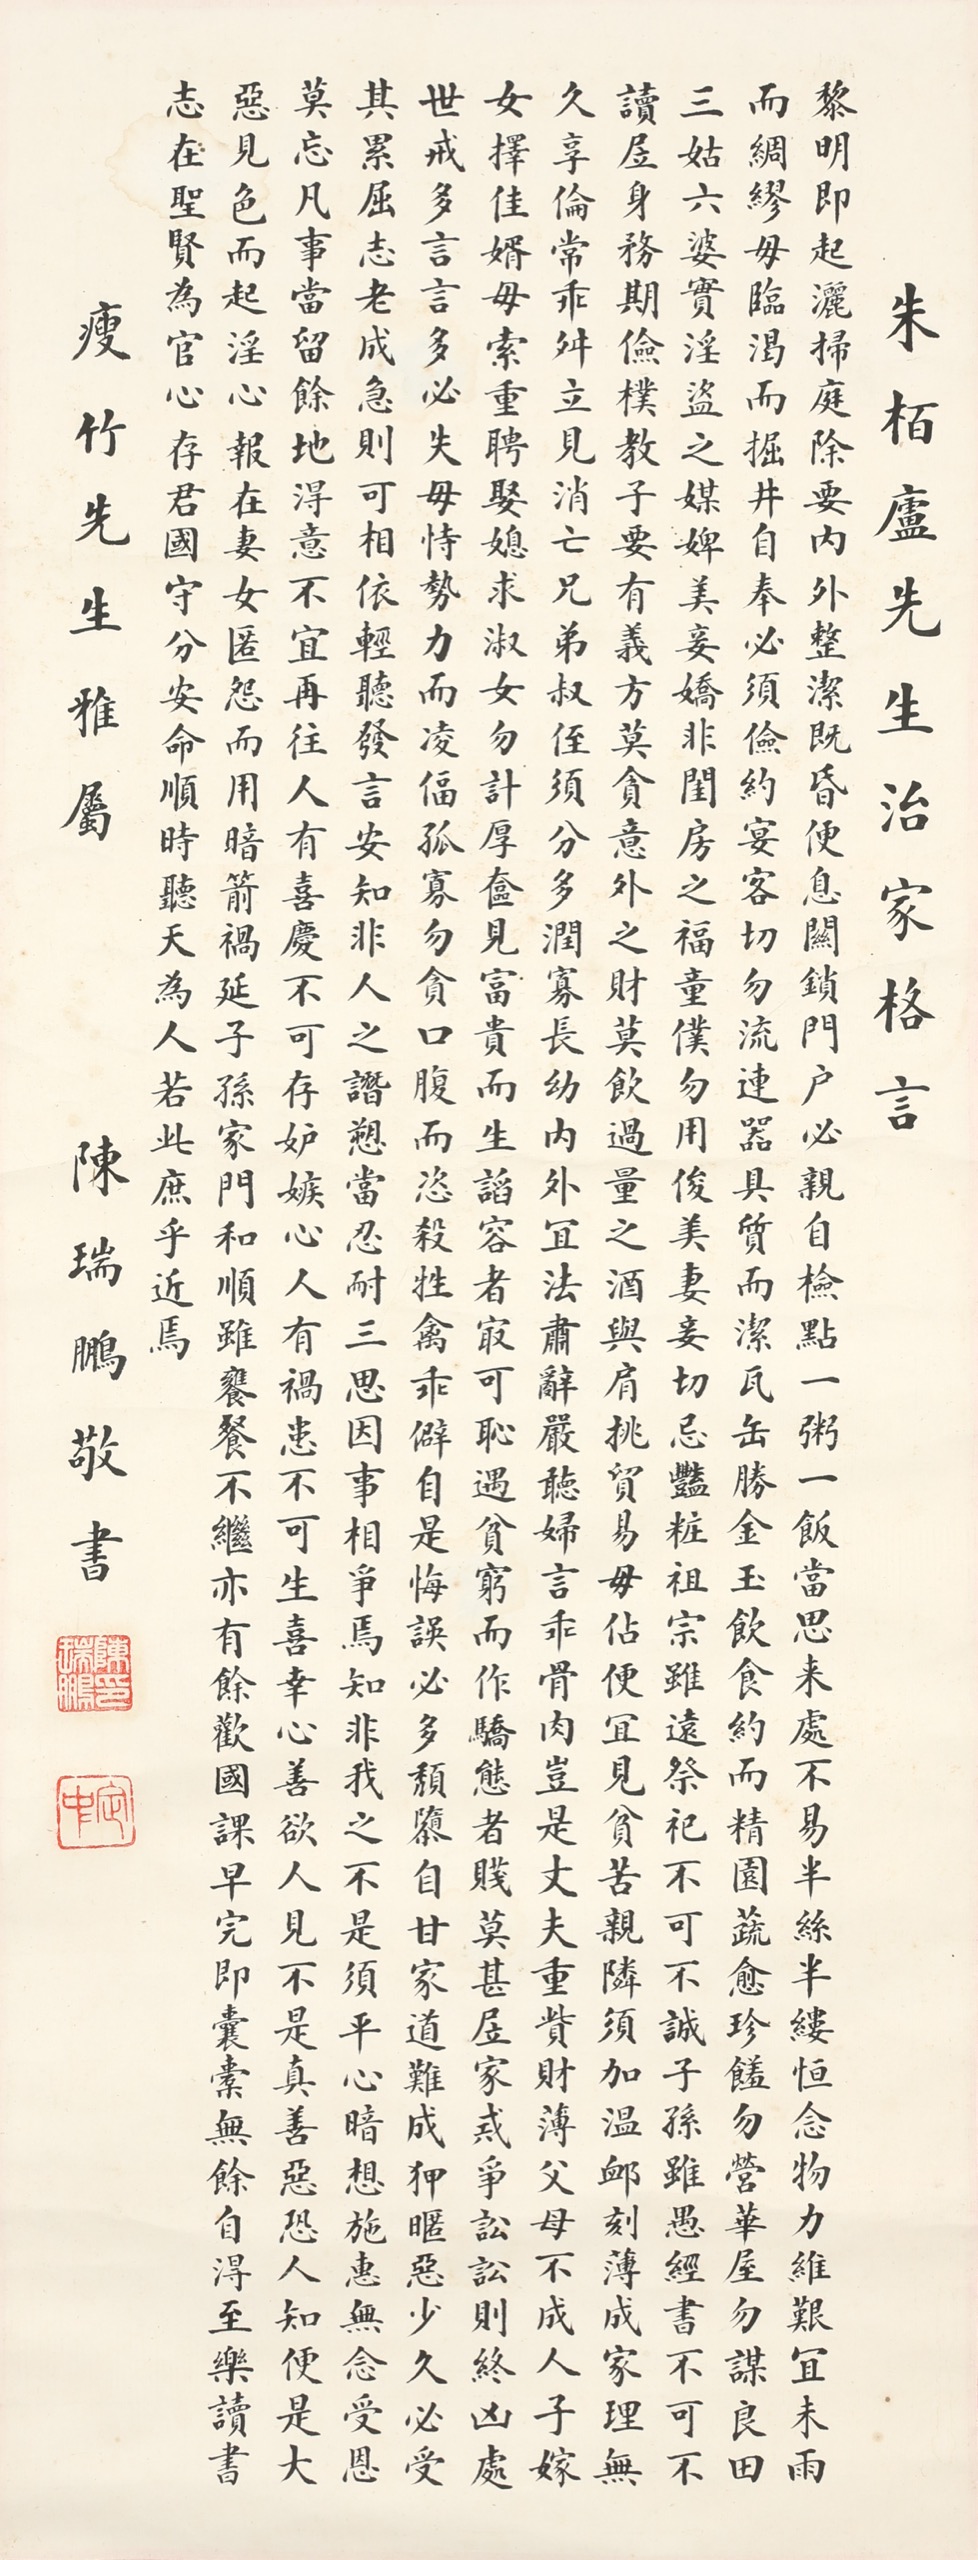 朱栢廬先生治家格言
黎明即起灑掃庭除要内外整潔既昏便息關鎖門户必親自檢點一粥一飯當思来處不易半絲半縷恒念物力維艱宜未雨
而綢繆毋臨渴而掘井自奉必須儉約宴客切勿流連器具質而潔瓦缶勝金玉飲食約而精園蔬愈珍饈勿營華屋勿謀良田
三姑六婆實淫盜之媒婢美妾嬌非閨房之福童僕勿用俊美妻妾切忌豔粧祖宗雖遠祭祀不可不誠子孫雖愚經書不可不
讀居身務期儉樸教子要有義方莫貪意外之財莫飲過量之酒與肩挑貿易毋佔便宜見貧苦親隣須加温卹刻薄成家理無
久享倫常乖舛立見消亡兄弟叔侄須分多潤寡長幼内外宜法肅辭嚴聽婦言乖骨肉豈是丈夫重貲財薄父母不成人子嫁
女擇佳婿毋索重聘娶媳求淑女勿計厚奩見富貴而生諂容者㝡可恥遇貧窮而作驕態者賤莫甚居家戒爭訟訟則終凶處
世戒多言言多必失毋恃勢力而凌偪孤寡勿貪口腹而恣殺牲禽乖僻自是悔誤必多頹隳自甘家道難成狎暱惡少久必受
其累屈志老成急則可相依輕聽發言安知非人之譖愬當忍耐三思因事相爭焉知非我之不是須平心暗想施惠無念受恩
莫忘凡事當留餘地得意不宜再往人有喜慶不可存妒嫉心人有禍患不可生喜幸心善欲人見不是真善惡恐人知便是大
惡見色而起淫心報在妻女匿怨而用暗箭禍延子孫家門和順雖饔餐不繼亦有餘歡國課早完即囊橐無餘自得至樂讀書
志在聖賢為官心存君國守分安命順時聽天為人若此庶乎近焉
瘦竹先生雅屬
陳瑞鵬敬書
陳印瑞鵬
定中